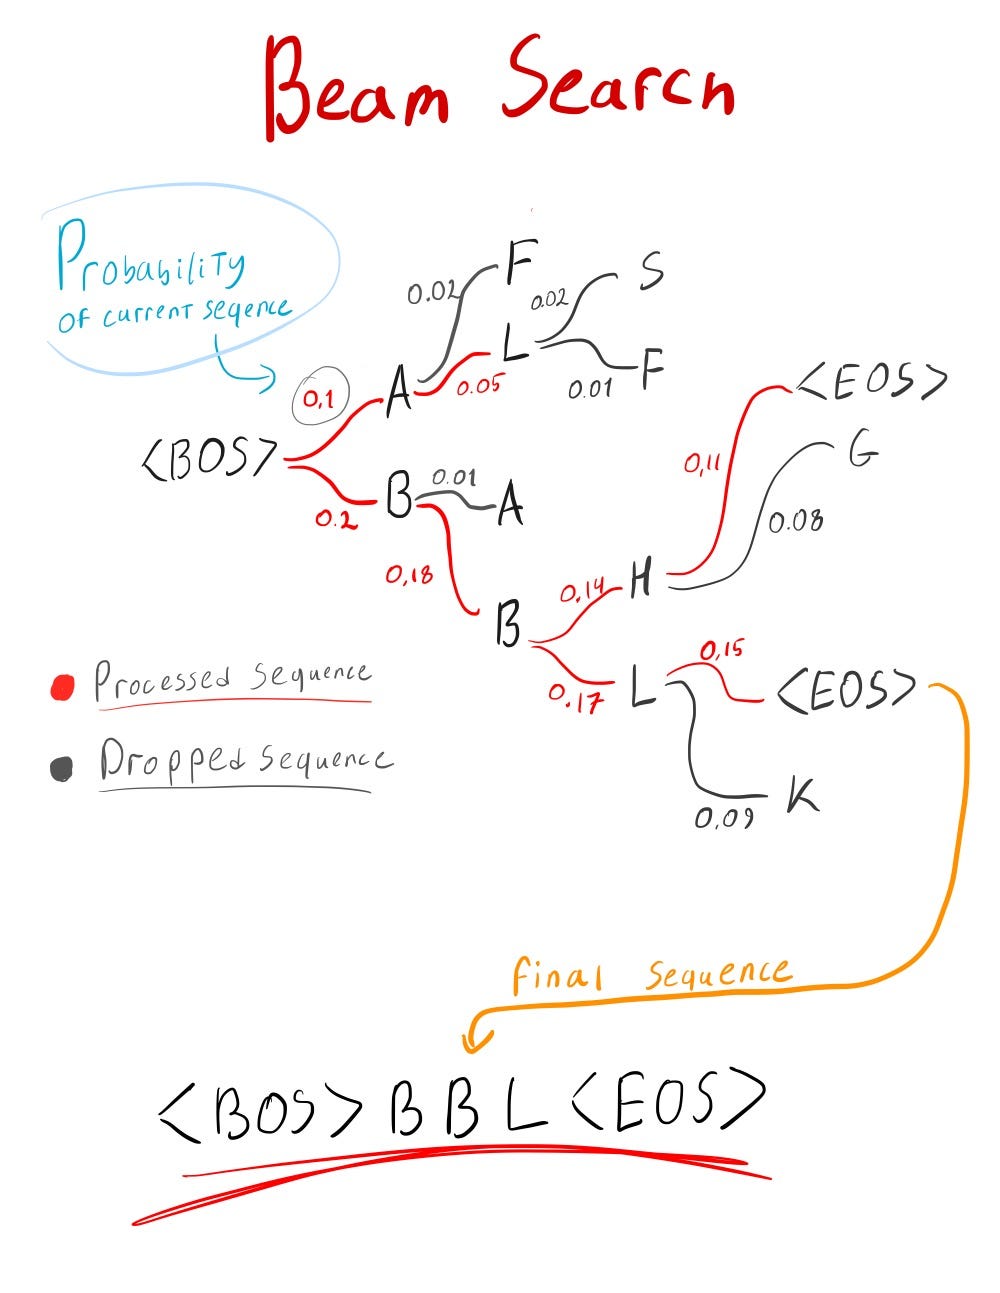 Beam Search
Probability
of current seqence
0.02
F
0.02
S
L
0.01
F
0,1
A
0.05
<EOS>
<BOS>
G
0,11
0.2
B
0.01
A
0.08
0,18
0.14
H
B
0.17
L
0,15
<EOS>
Processed sequence
Dropped sequence
0,09
K
final sequence
<BOS> B B L <EOS>